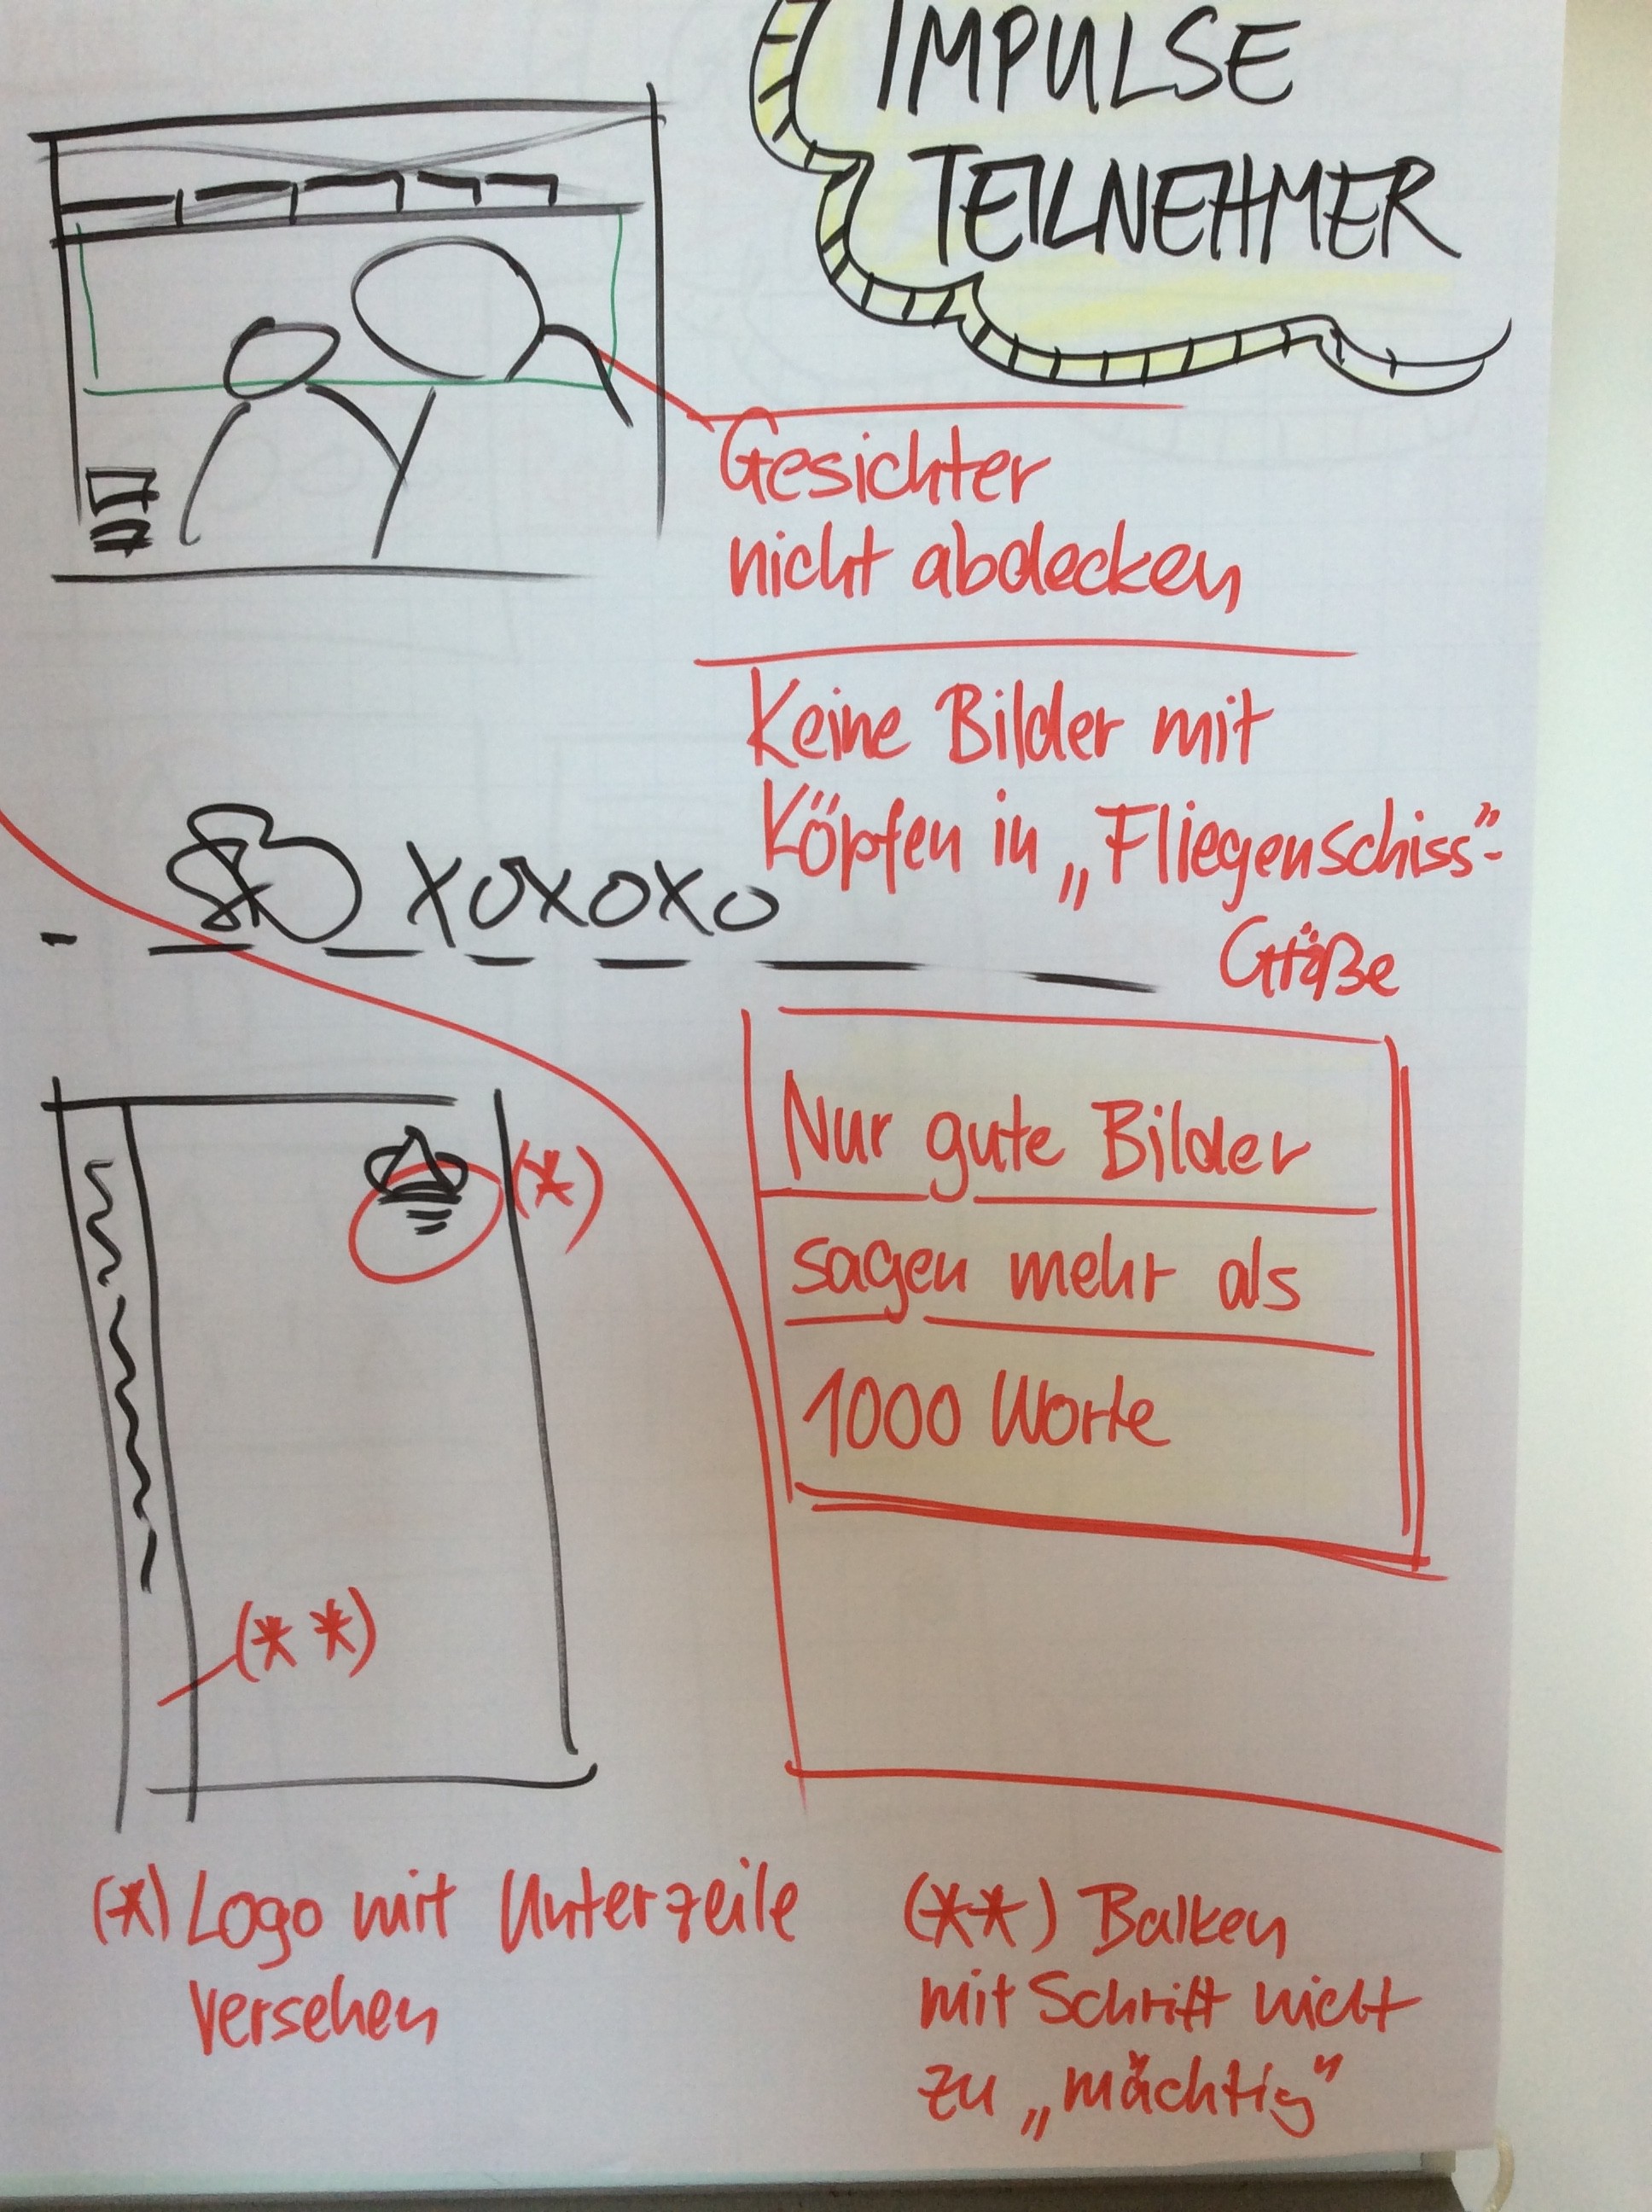 IMPULSE
TEILNEHMER
Gesichter
nicht abdecken
Keine Bilder mit
Köpfen in „Fliegenschiss"-
Größe
XOXOXO
Nur gute Bilder
sagen mehr als
1000 Worte
(*)
(**)
(*) Logo mit Unterzeile
versehen
(**) Balken
mit Schrift nicht
zu „mächtig"